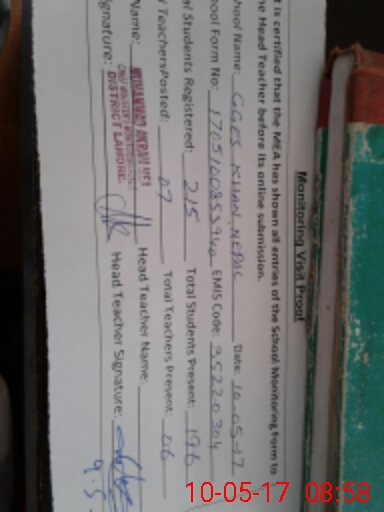 Monitoring Visit Proof
t is certified that the MEA has shown all entries of the School Monitoring Form to
he Head Teacher before its online submission.
hool Name: GGES KHAN NEPAL Date: 10-05-17
hool Form No: EMIS Code: 35220304
al Students Registered: 215 Total Students Present: 196
l Teachers Posted: 07 Total Teachers Present: 06
Name: MUHAMMAD AKRAM Head Teacher Name:
DISTRICT LAHORE.
ignature: Head Teacher Signature:
10-05-17 08:58